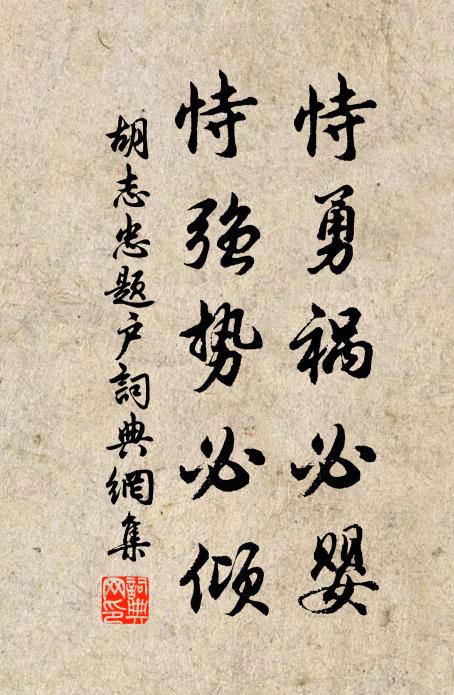 恃勇祸必婴
恃强势必倾
胡志忠题户詞典網集
詞典网印